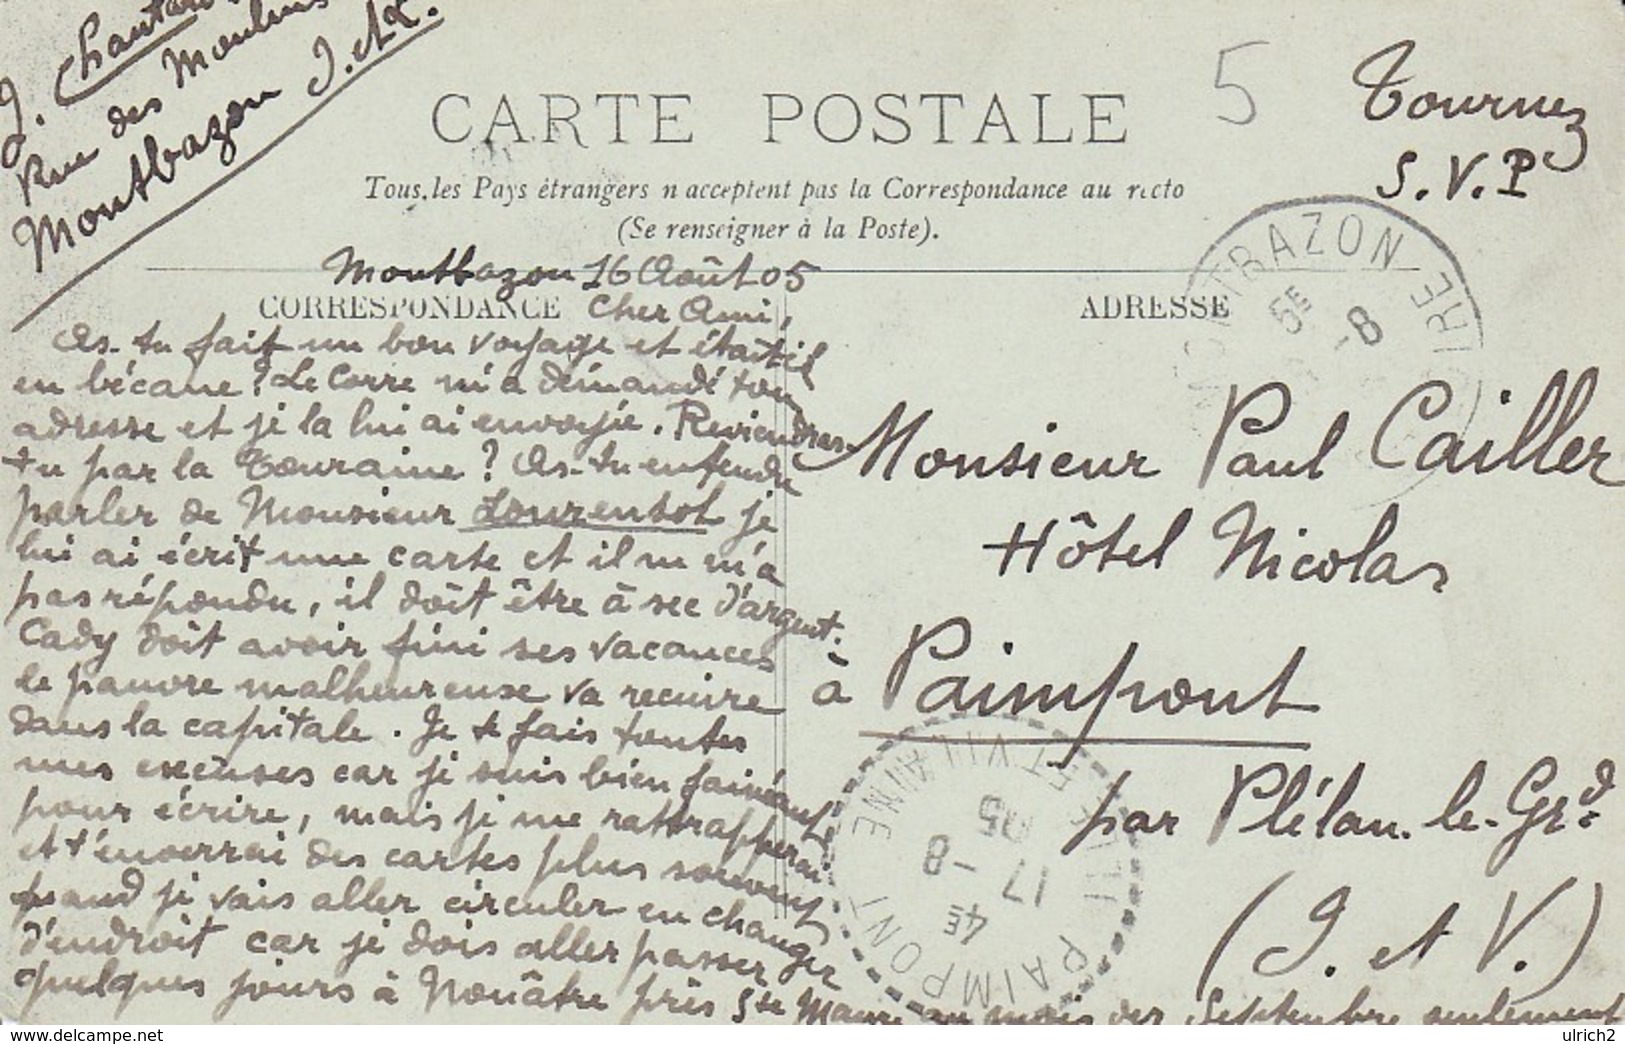 J. Chautard
Rue des Moulins
Montbazon I. et L.
5
Tournez
S. V. P
CARTE POSTALE
Tous les Pays étrangers n'acceptent pas la Correspondance au recto
(Se renseigner à la Poste).
Montbazon 16 Août 05
CORRESPONDANCE
Cher Ami,
As-tu fait un bon voyage et étaît-il
en bécane? Le Corre m'a démandé ton
adresse et je la lui ai envoyée. Reviendras-
tu par la Touraine? As-tu entendu
parler de Monsieur je
lui ai écrit une carte et il ne m'a
pas répondu, il doit être à sec d'argent.
Cady doit avoir fini ses vacances
le pauvre malheureuse va recuire
dans la capitale. Je te fais toutes
mes excuses car je suis bien fainéant
pour écrire, mais je me rattrapperai
et t'enverrai des cartes plus souvent
quand je vais aller circuler en changer
d'endroit car je dois aller passer
quelques jours à Nouâtre près Ste Maure au mois de Septembre seulement
ADRESSE
Monsieur Paul Cailler
Hôtel Nicolas
à Paimpont
par Plélan-le-Grd
(I. et V.)
MONTBAZON INDRE
5E
-8
PAIMPONT ILLE ET VILAINE
4E
17 -8
05
www.delcampe.net
ulrich2